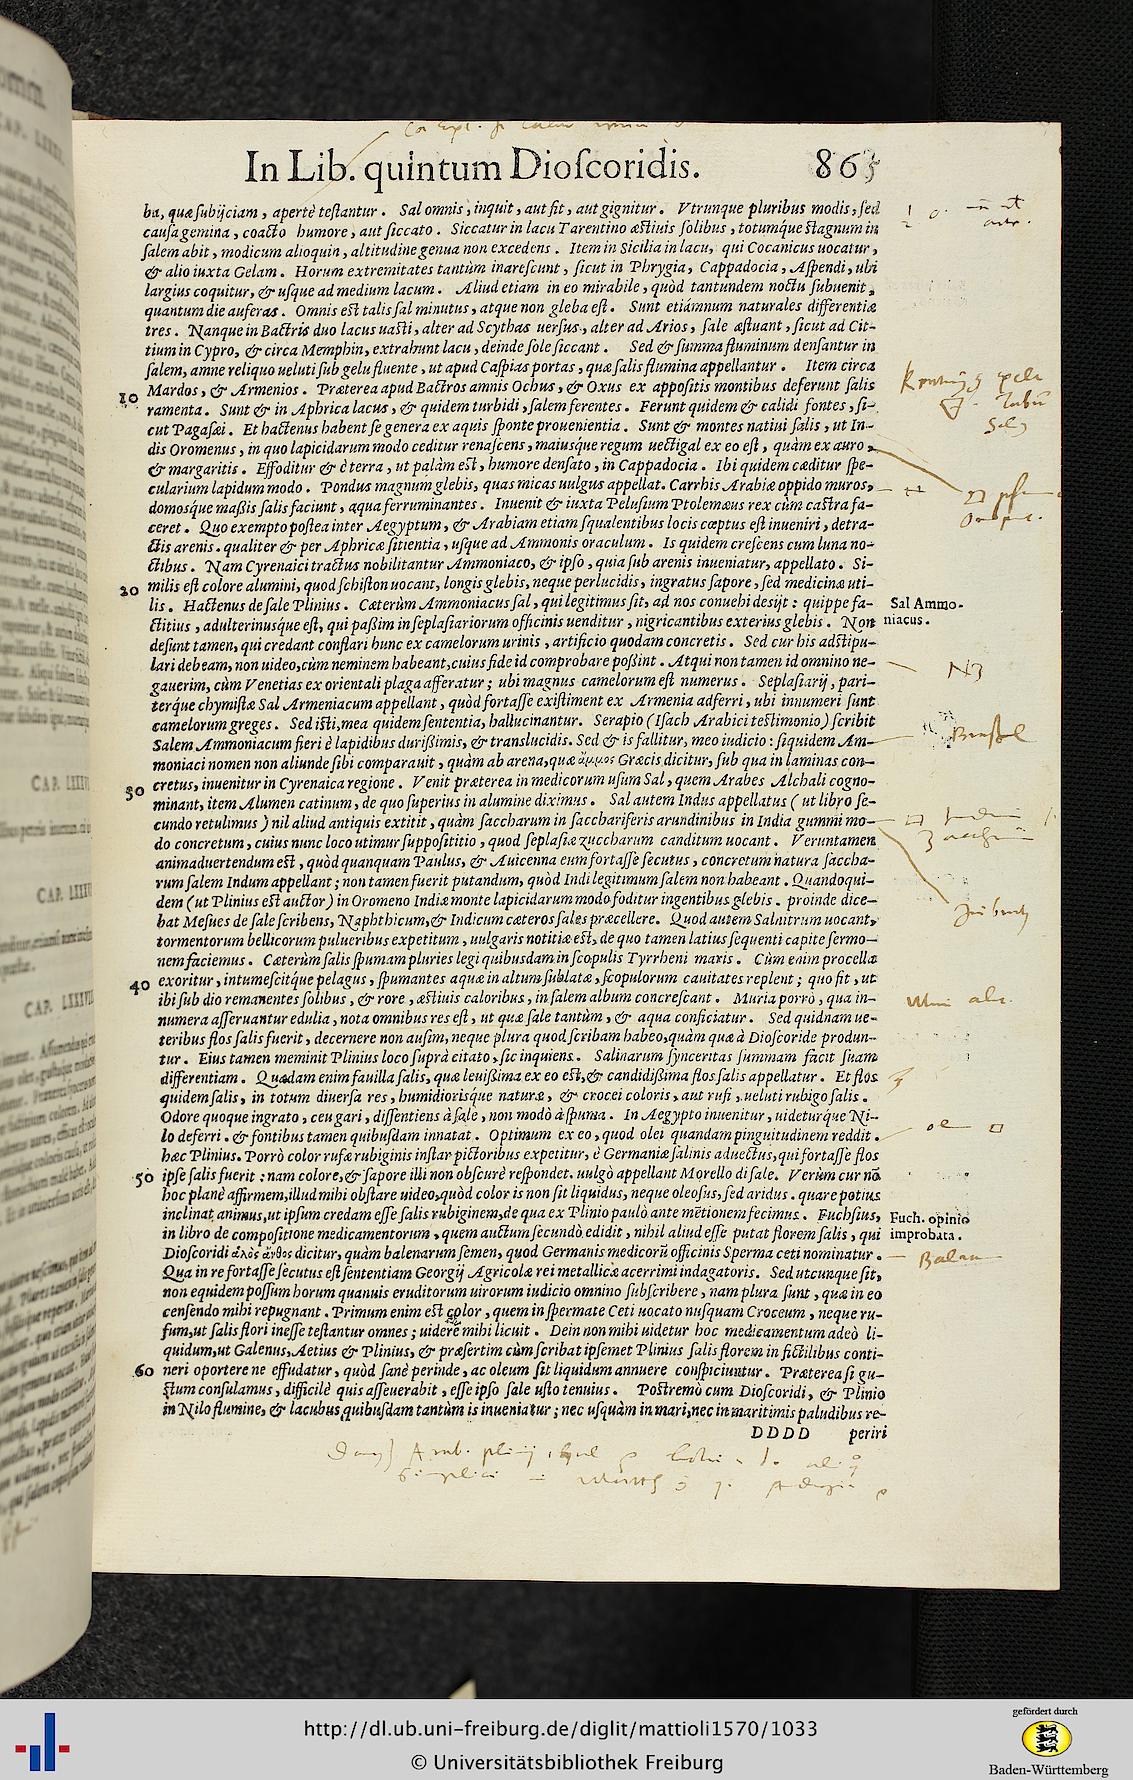 In Lib. quintum Dioſcoridis. 865
ba, quæ ſubijciam, apertè teſtantur. Sal omnis, inquit, aut fit, aut gignitur. Vtrunque pluribus modis, ſed
cauſa gemina, coacto humore, aut ſiccato. Siccatur in lacu Tarentino æſtiuis ſolibus, totumque ſtagnum in
ſalem abit, modicum alioquin, altitudine genua non excedens. Item in Sicilia in lacu, qui Cocanicus uocatur,
& alio iuxta Gelam. Horum extremitates tantùm inareſcunt, ſicut in Phrygia, Cappadocia, Aſpendi, ubi
largius coquitur, & uſque ad medium lacum. Aliud etiam in eo mirabile, quòd tantundem noctu ſubuenit,
quantum die auferas. Omnis eſt talis ſal minutus, atque non gleba eſt. Sunt etiámnum naturales differentiæ
tres. Nanque in Bactris duo lacus uaſti, alter ad Scythas uerſus, alter ad Arios, ſale æſtuant, ſicut ad Cit-
tium in Cypro, & circa Memphin, extrahunt lacu, deinde ſole ſiccant. Sed & ſumma fluminum denſantur in
ſalem, amne reliquo ueluti ſub gelu fluente, ut apud Caſpias portas, quæ ſalis flumina appellantur. Item circa
10 Mardos, & Armenios. Præterea apud Bactros amnis Ochus, & Oxus ex appoſitis montibus deferunt ſalis
ramenta. Sunt & in Aphrica lacus, & quidem turbidi, ſalem ferentes. Ferunt quidem & calidi fontes, ſi-
cut Pagaſæi. Et hactenus habent ſe genera ex aquis ſponte prouenientia. Sunt & montes natiui ſalis, ut In-
dis Oromenus, in quo lapicidarum modo ceditur renaſcens, maiusque regum uectigal ex eo eſt, quàm ex auro,
& margaritis. Effoditur & è terra, ut palàm eſt, humore denſato, in Cappadocia. Ibi quidem cæditur ſpe-
cularium lapidum modo. Pondus magnum glebis, quas micas uulgus appellat. Carrhis Arabiæ oppido muros,
domosque maßis ſalis faciunt, aqua ferruminantes. Inuenit & iuxta Peluſium Ptolemæus rex cùm caſtra fa-
ceret. Quo exempto poſtea inter Aegyptum, & Arabiam etiam ſqualentibus locis cœptus eſt inueniri, detra-
ctis arenis. qualiter & per Aphricæ ſitientia, uſque ad Ammonis oraculum. Is quidem creſcens cum luna no-
ctibus. Nam Cyrenaici tractus nobilitantur Ammoniaco, & ipſo, quia ſub arenis inueniatur, appellato. Si-
20 milis eſt colore alumini, quod ſchiſton uocant, longis glebis, neque perlucidis, ingratus ſapore, ſed medicinæ uti-
lis. Hactenus de ſale Plinius. Cæterùm Ammoniacus ſal, qui legitimus ſit, ad nos conuehi deſijt: quippe fa-
Sal Ammo-
ctitius, adulterinusque eſt, qui paßim in ſeplaſiariorum officinis uenditur, nigricantibus exterius glebis. Non
niacus.
deſunt tamen, qui credant conflari hunc ex camelorum urinis, artificio quodam concretis. Sed cur his adſtipu-
lari debeam, non uideo, cùm neminem habeant, cuius fide id comprobare poßint. Atqui non tamen id omnino ne-
gauerim, cùm Venetias ex orientali plaga afferatur; ubi magnus camelorum eſt numerus. Seplaſiarij, pari-
terque chymiſtæ Sal Armeniacum appellant, quòd fortaſſe exiſtiment ex Armenia adferri, ubi innumeri ſunt
camelorum greges. Sed iſti, mea quidem ſententia, hallucinantur. Serapio (Iſach Arabici teſtimonio) ſcribit
Salem Ammoniacum fieri è lapidibus durißimis, & translucidis. Sed & is fallitur, meo iudicio: ſiquidem Am-
moniaci nomen non aliunde ſibi comparauit, quàm ab arena, quæ ἄμμος Græcis dicitur, ſub qua in laminas con-
30 cretus, inuenitur in Cyrenaica regione. Venit præterea in medicorum uſum Sal, quem Arabes Alchali cogno-
minant, item Alumen catinum, de quo ſuperius in alumine diximus. Sal autem Indus appellatus (ut libro ſe-
cundo retulimus) nil aliud antiquis extitit, quàm ſaccharum in ſacchariferis arundinibus in India gummi mo-
do concretum, cuius nunc loco utimur ſuppoſititio, quod ſeplaſiæ zuccharum canditum uocant. Veruntamen
animaduertendum eſt, quòd quanquam Paulus, & Auicenna eum fortaſſe ſecutus, concretum natura ſaccha-
rum ſalem Indum appellant; non tamen fuerit putandum, quòd Indi legitimum ſalem non habeant. Quandoqui-
dem (ut Plinius eſt auctor) in Oromeno Indiæ monte lapicidarum modo foditur ingentibus glebis. proinde dice-
bat Meſues de ſale ſcribens, Naphthicum, & Indicum cæteros ſales præcellere. Quod autem Salnitrum uocant,
tormentorum bellicorum pulueribus expetitum, uulgaris notitiæ eſt, de quo tamen latius ſequenti capite ſermo-
nem faciemus. Cæterùm ſalis ſpumam pluries legi quibuſdam in ſcopulis Tyrrheni maris. Cùm enim procella
40 exoritur, intumeſcitque pelagus, ſpumantes aquæ in altum ſublatæ, ſcopulorum cauitates replent; quo fit, ut
ibi ſub dio remanentes ſolibus, & rore, æſtiuis caloribus, in ſalem album concreſcant. Muria porrò, qua in-
numera aſſeruantur edulia, nota omnibus res eſt, ut quæ ſale tantùm, & aqua conficiatur. Sed quidnam ue-
teribus flos ſalis fuerit, decernere non auſim, neque plura quod ſcribam habeo, quàm quæ à Dioſcoride produn-
tur. Eius tamen meminit Plinius loco ſuprà citato, ſic inquiens. Salinarum ſynceritas ſummam facit ſuam
differentiam. Quædam enim fauilla ſalis, quæ leuißima ex eo eſt, & candidißima flos ſalis appellatur. Et flos
quidem ſalis, in totum diuerſa res, humidiorisque naturæ, & crocei coloris, aut rufi, ueluti rubigo ſalis.
Odore quoque ingrato, ceu gari, diſſentiens à ſale, non modò à ſpuma. In Aegypto inuenitur, uideturque Ni-
lo deferri. & fontibus tamen quibuſdam innatat. Optimum ex eo, quod olei quandam pinguitudinem reddit.
hæc Plinius. Porrò color rufæ rubiginis inſtar pictoribus expetitur, è Germaniæ ſalinis aduectus, qui fortaſſe flos
50 ipſe ſalis fuerit: nam colore, & ſapore illi non obſcurè reſpondet. uulgò appellant Morello di ſale. Verùm cur nō
hoc planè affirmem, illud mihi obſtare uideo, quòd color is non ſit liquidus, neque oleoſus, ſed aridus. quare potius
inclinat animus, ut ipſum credam eſſe ſalis rubiginem, de qua ex Plinio paulò ante mētionem fecimus. Fuchſius,
Fuch. opinio
in libro de compoſitione medicamentorum, quem auctum ſecundò edidit, nihil aliud eſſe putat florem ſalis, qui
improbata.
Dioſcoridi ἁλὸς ἄνθος dicitur, quàm balenarum ſemen, quod Germanis medicorū officinis Sperma ceti nominatur.
Qua in re fortaſſe ſecutus eſt ſententiam Georgij Agricolæ rei metallicæ acerrimi indagatoris. Sed utcunque ſit,
non equidem poſſum horum quanuis eruditorum uirorum iudicio omnino ſubſcribere, nam plura ſunt, quæ in eo
cenſendo mihi repugnant. Primum enim eſt color, quem in ſpermate Ceti uocato nuſquam Croceum, neque ru-
fum, ut ſalis flori ineſſe teſtantur omnes; uidere mihi licuit. Dein non mihi uidetur hoc medicamentum adeò li-
quidum, ut Galenus, Aetius & Plinius, & præſertim cùm ſcribat ipſemet Plinius ſalis florem in fictilibus conti-
60 neri oportere ne effudatur, quòd ſanè perinde, ac oleum ſit liquidum annuere conſpiciuntur. Præterea ſi gu-
ſtum conſulamus, difficilè quis aſſeuerabit, eſſe ipſo ſale uſto tenuius. Poſtremò cum Dioſcoridi, & Plinio
in Nilo flumine, & lacubus quibuſdam tantùm is inueniatur; nec uſquàm in mari, nec in maritimis paludibus re-
DDDD periri
CAP. LXXXVII
http://dl.ub.uni-freiburg.de/diglit/mattioli1570/1033
© Universitätsbibliothek Freiburg
gefördert durch
Baden-Württemberg